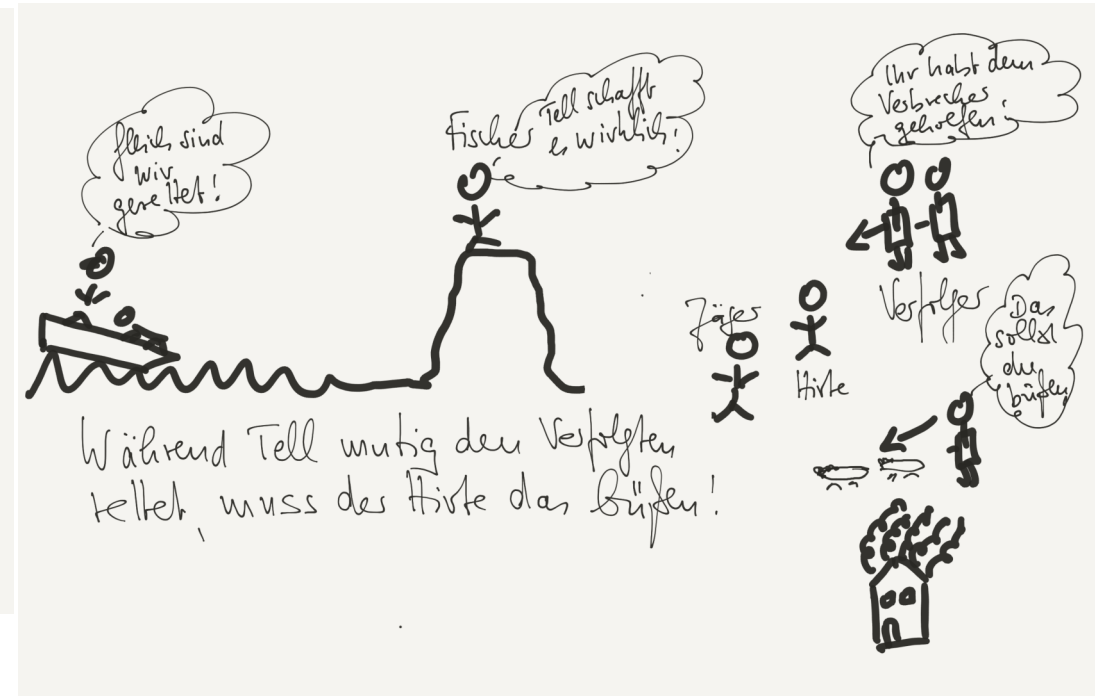 Gleich sind
wir
gerettet!
Fischer
Tell schafft
es wirklich!
Ihr habt dem
Verbrecher
geholfen!
Verfolger
Jäger
Hirte
Das
sollst
du
büßen
Während Tell mutig den Verfolgten
rettet, muss der Hirte das büßen!